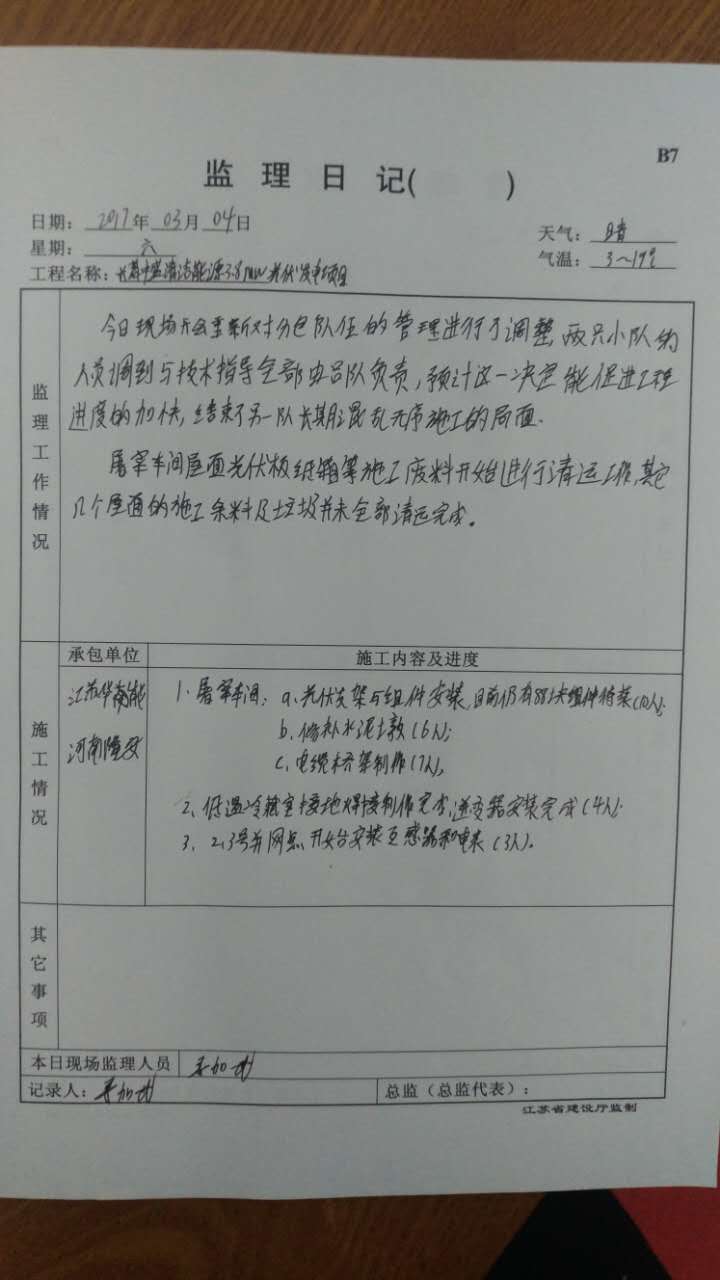 B7
监 理 日 记( )
日期: 2017年 03月 04日
天气: 晴
星期: 六
气温: 3~19℃
工程名称: 清洁能源3.8MW光伏发电项目
监理工作情况
今日现场开会重新对分包队伍的管理进行了调整,两只小队的
人员调到与技术指导全部由吕队负责,预计这一决定能促进工程
进度的加快,结束了另一队长期混乱无序施工的局面.
屠宰车间屋面光伏板纸箱等施工废料开始进行清运工作,其它
几个屋面的施工余料及垃圾并未全部清运完成。
施工情况
承包单位
施工内容及进度
江苏华
河南隆
1、屠宰车间: a、光伏支架与组件安装,目前仍有881块组件待装(10人);
b、修补水泥墩(6人);
c、电缆桥架制作(7人),
2、低温冷藏室接地焊接制作完成,逆变器安装完成(4人);
3、2、3号并网点开始安装互感器和电表(3人)。
其它事项
本日现场监理人员
记录人:
总监(总监代表):
江苏省建设厅监制